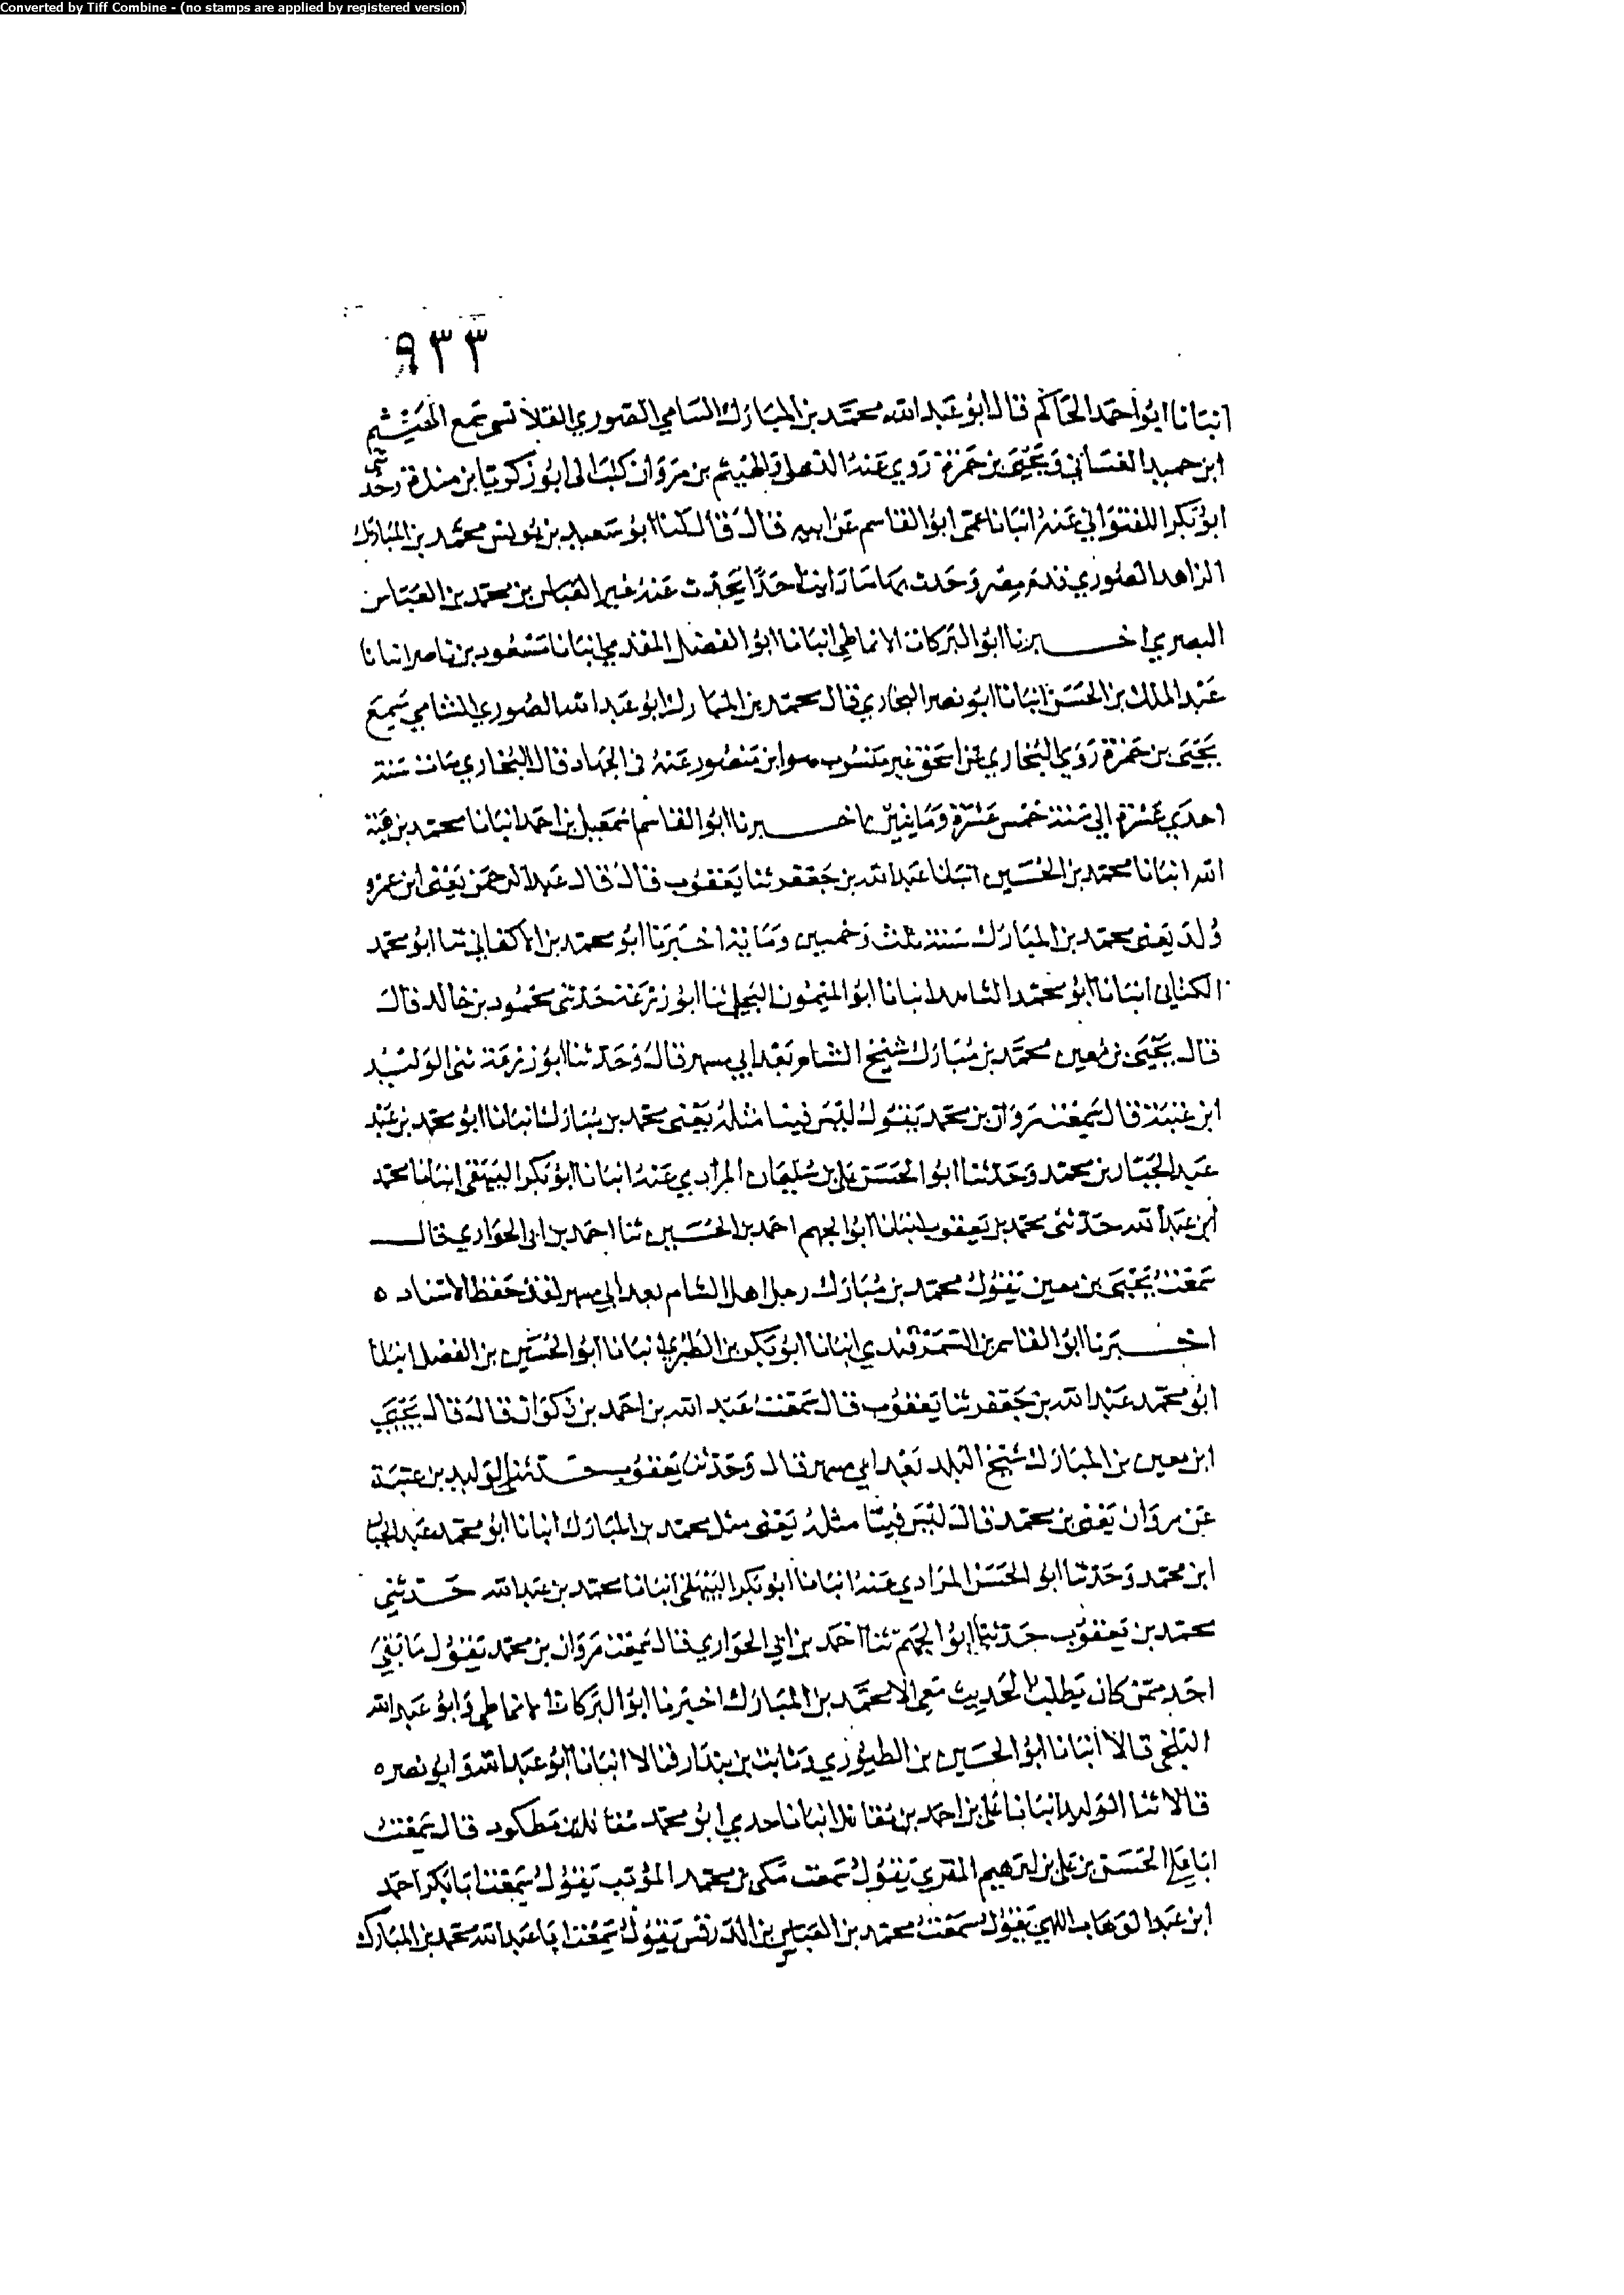 Converted by Tiff Combine - (no stamps are applied by registered version)
٩٣٣
انبانا ابو احمد الحاكم قال ابو عبد الله محمد بن المبارك الشامي الصوري القلانسي سمع الهيثم
ابن حميد الغساني ويحيى بن حمزة روي عنه الذهلي والهيثم بن مروان كتب الي ابو زكريا بن مندة وحدثني
ابو بكر اللفتواني عنه انبانا عمي ابو القاسم عن ابيه قال قال لنا ابو سعيد بن يونس محمد بن المبارك
الزاهد الصوري قدم مصر وحدث بها ما رايت احدا يحدث عنه غير العباس بن محمد بن العباس
البصري اخبرنا ابو البركات الانماطي انبانا ابو الفضل المقدسي انبانا مسعود بن ناصر انبانا
عبد الملك بن الحسن انبانا ابو نصر البخاري قال محمد بن المبارك ابو عبد الله الصوري الشامي سمع
يحيى بن حمزة روي البخاري عن اسحق غير منسوب هو ابن منصور عنه في الجهاد قال البخاري مات سنة
احدي عشرة الي سنة خمس عشرة ومايتين اخبرنا ابو القاسم اسمعيل بن احمد انبانا محمد بن هبة
الله انبانا محمد بن الحسين انبانا عبد الله بن جعفر ثنا يعقوب قال قال عبد الرحمن يعني ابن عمرو
ولد يعني محمد بن المبارك سنة ثلث وخمسين ومايه اخبرنا ابو محمد بن الاكفاني ثنا ابو محمد
الكتاني انبانا ابو محمد الشاهد انبانا ابو الميمون البجلي ثنا ابو زرعة حدثني محمود بن خالد قال
قال يحيى بن معين محمد بن مبارك شيخ الشام بعد ابي مسهر قال وحدثنا ابو زرعة ثني الوليد
ابن عتبة قال سمعت مروان بن محمد يقول ليس فينا مثله يعني محمد بن مبارك انبانا ابو محمد بن عبد
عبد الجبار بن محمد وحدثنا ابو الحسن علي بن سليمان المرادي عنه انبانا ابو بكر البيهقي انبانا محمد
ابن عبد الله حدثني محمد بن يعقوب انبانا ابو الجهم احمد بن الحسين ثنا احمد بن ابي الحواري قال
سمعت يحيى بن معين يقول محمد بن مبارك رجل اهل الشام بعد ابي مسهر لقد حفظ الاسناد ه
اخبرنا ابو القاسم بن السمرقندي انبانا ابو بكر بن الطبري انبانا ابو الحسين بن الفضل انبانا
ابو محمد عبد الله بن جعفر ثنا يعقوب قال سمعت عبد الله بن احمد بن ذكوان قال قال يحيى
ابن معين بن المبارك شيخ البلد بعد ابي مسهر قال وحدثنا يعقوب حدثني الوليد بن عتبة
عن مروان يعني بن محمد قال ليس فينا مثله يعني مثل محمد بن المبارك انبانا ابو محمد عبد الجبار
ابن محمد وحدثنا ابو الحسن المرادي عنه انبانا ابو بكر البيهقي انبانا محمد بن عبد الله حدثني
محمد بن يعقوب حدثنا ابو الجهم ثنا احمد بن ابي الحواري قال سمعت مروان بن محمد يقول ما بقي
احد ممن كان يطلب الحديث معي الا محمد بن المبارك اخبرنا ابو البركات الانماطي وابو عبد الله
البلخي قالا انبانا ابو الحسين بن الطيوري وثابت بن بندار قالا انبانا ابو عبد الله وابو نصر ه
قالا ثنا الوليد انبانا علي بن احمد بن مقاتل انبانا جدي ابو محمد مقاتل بن مطكود قال سمعت
ابا علي الحسن بن علي بن ابرهيم المقري يقول سمعت مكي بن محمد المؤدب يقول سمعت ابا بكر احمد
ابن عبد الوهاب اللهبي يقول سمعت محمد بن العباس بن الدرفس يقول سمعت ابا عبد الله محمد بن المبارك